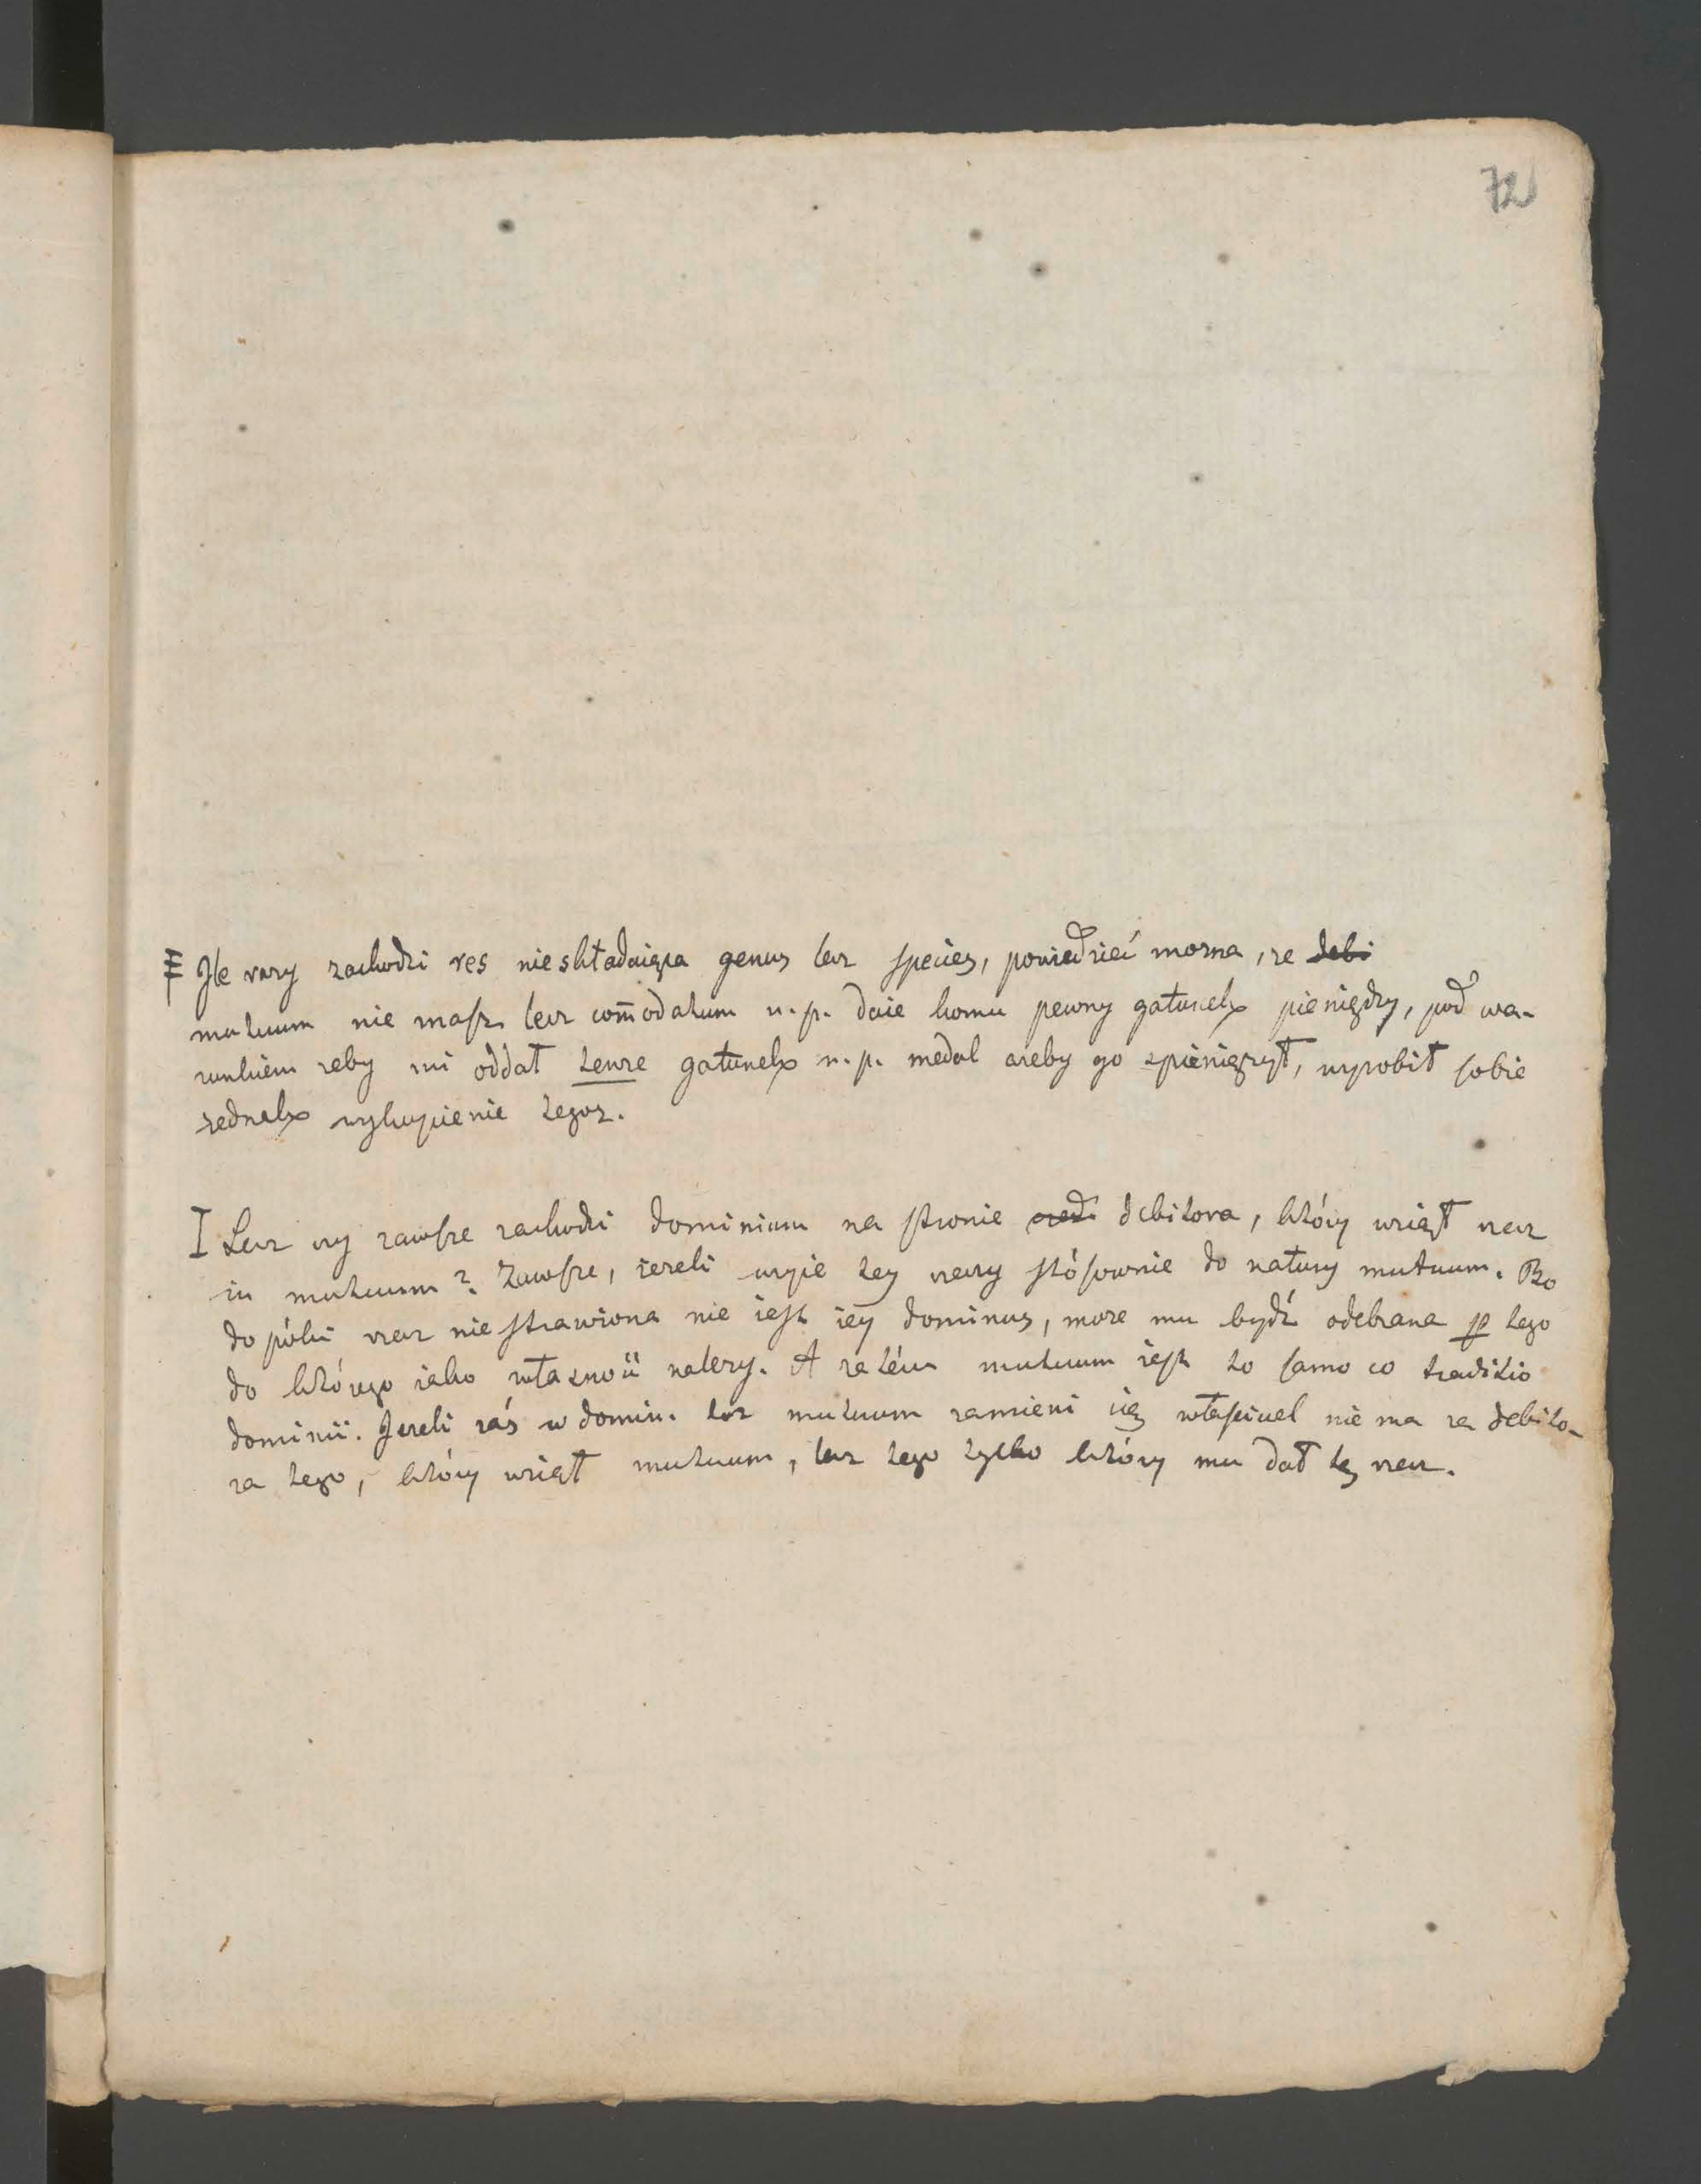 72
Ile razy zachodzi res nieskładaiąca genus lecz species, powiedzieć można, że debi
mutuum nie masz lecz com̄odatum n. p. daie komu pewny gatunek pieniędzy, pod wa-
runkiem żeby mi oddał tenże gatunek n. p. medal ażeby go spieniężył, wyrobił sobie
jednak wykupienie tegoż.
I Lecz czy zawsze zachodzi dominium na stronie debitora, który wziął rzecz
in mutuum? Zawsze, ieżeli użyie tey rzeczy stósownie do natury mutuum. Bo
do póki rzecz niestrawiona nie iest iey dominus, może mu bydź odebrana p tego
do którego iako własność należy. A zatém mutuum iest to samo co traditio
dominii. Jeżeli záś w domin. toż mutuum zamieni się właściciel nie ma za debito-
ra tego, który wziął mutuum, lecz tego tylko który mu dał tę rzecz.